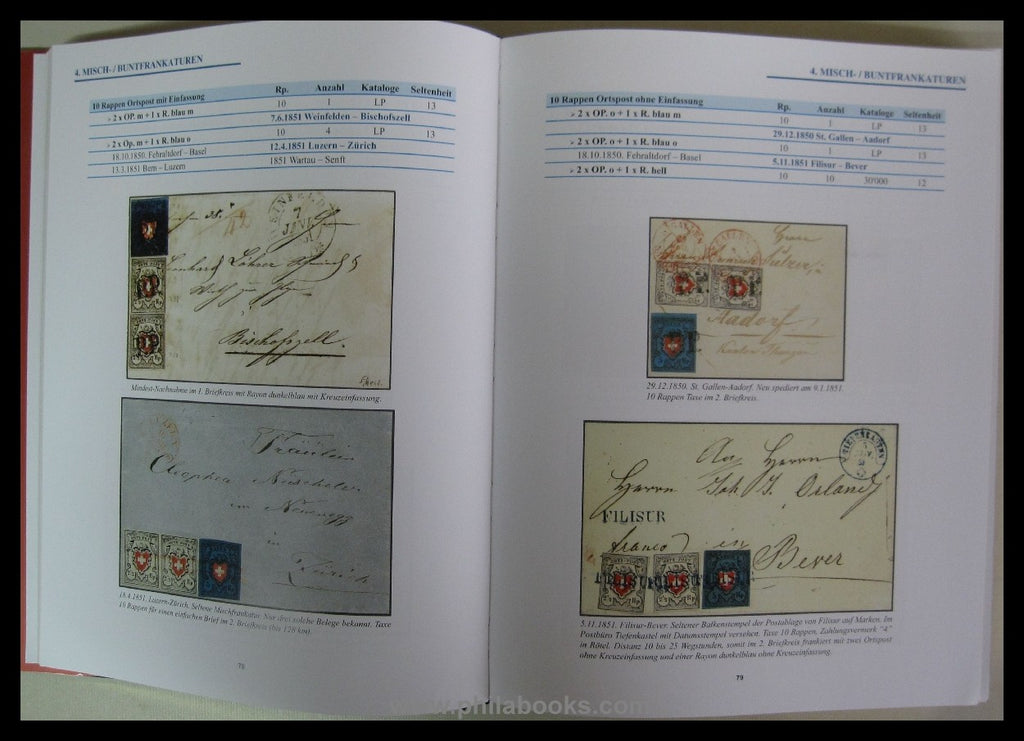 4. MISCH- / BUNTFRANKATUREN
10 Rappen Ortspost mit Einfassung Rp. Anzahl Kataloge Seltenheit
> 2 x OP. m + 1 x R. blau m 10 1 LP 13
7.6.1851 Weinfelden – Bischofszell
> 2 x Op. m + 1 x R. blau o 10 4 LP 13
18.10.1850. Fehraltdorf – Basel 12.4.1851 Luzern – Zürich
13.3.1851 Bern – Luzern 1851 Wartau – Senft
Bischofszell.
Mindest-Nachnahme im 1. Briefkreis mit Rayon dunkelblau mit Kreuzeinfassung.
Fräulein
in
Zürich
18.4.1851. Luzern-Zürich. Seltene Mischfrankatur. Nur drei solche Belege bekannt. Taxe
10 Rappen für einen einfachen Brief im 2. Briefkreis (bis 128 km).
78
4. MISCH- / BUNTFRANKATUREN
10 Rappen Ortspost ohne Einfassung Rp. Anzahl Kataloge Seltenheit
> 2 x OP. o + 1 x R. blau m 10 1 LP 13
29.12.1850 St. Gallen – Aadorf
> 2 x OP. o + 1 x R. blau o 10 1 LP 13
18.10.1850. Fehraltdorf – Basel 5.11.1851 Filisur – Bever
> 2 x OP. o + 1 x R. hell 10 10 30'000 12
Aadorf
29.12.1850. St. Gallen-Aadorf. Neu spediert am 9.1.1851.
10 Rappen Taxe im 2. Briefkreis.
An Herrn
Herrn Joh J. Orland
FILISUR
franco in Bever
5.11.1851. Filisur-Bever. Seltener Balkenstempel der Postablage von Filisur auf Marken. Im
Postbüro Tiefenkastel mit Datumsstempel versehen. Taxe 10 Rappen, Zahlungsvermerk "4"
in Rötel. Distanz 10 bis 25 Wegstunden, somit im 2. Briefkreis frankiert mit zwei Ortspost
ohne Kreuzeinfassung und einer Rayon dunkelblau ohne Kreuzeinfassung.
79
www.philabooks.com